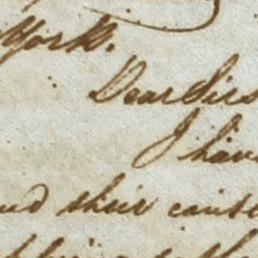 York.
Dear Sirs
I have
and their cause